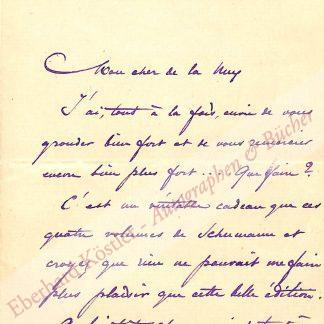 Mon cher de la Nux
J'ai, tout à la fois, envie de vous
gronder bien fort et de vous remercier
encore bien plus fort... Que faire ?
C'est un véritable cadeau que ces
quatre volumes de Schumann et
croyez que rien ne pouvait me faire
plus plaisir que cette belle édition.
Eberhard Köstler - Autographen & Bücher